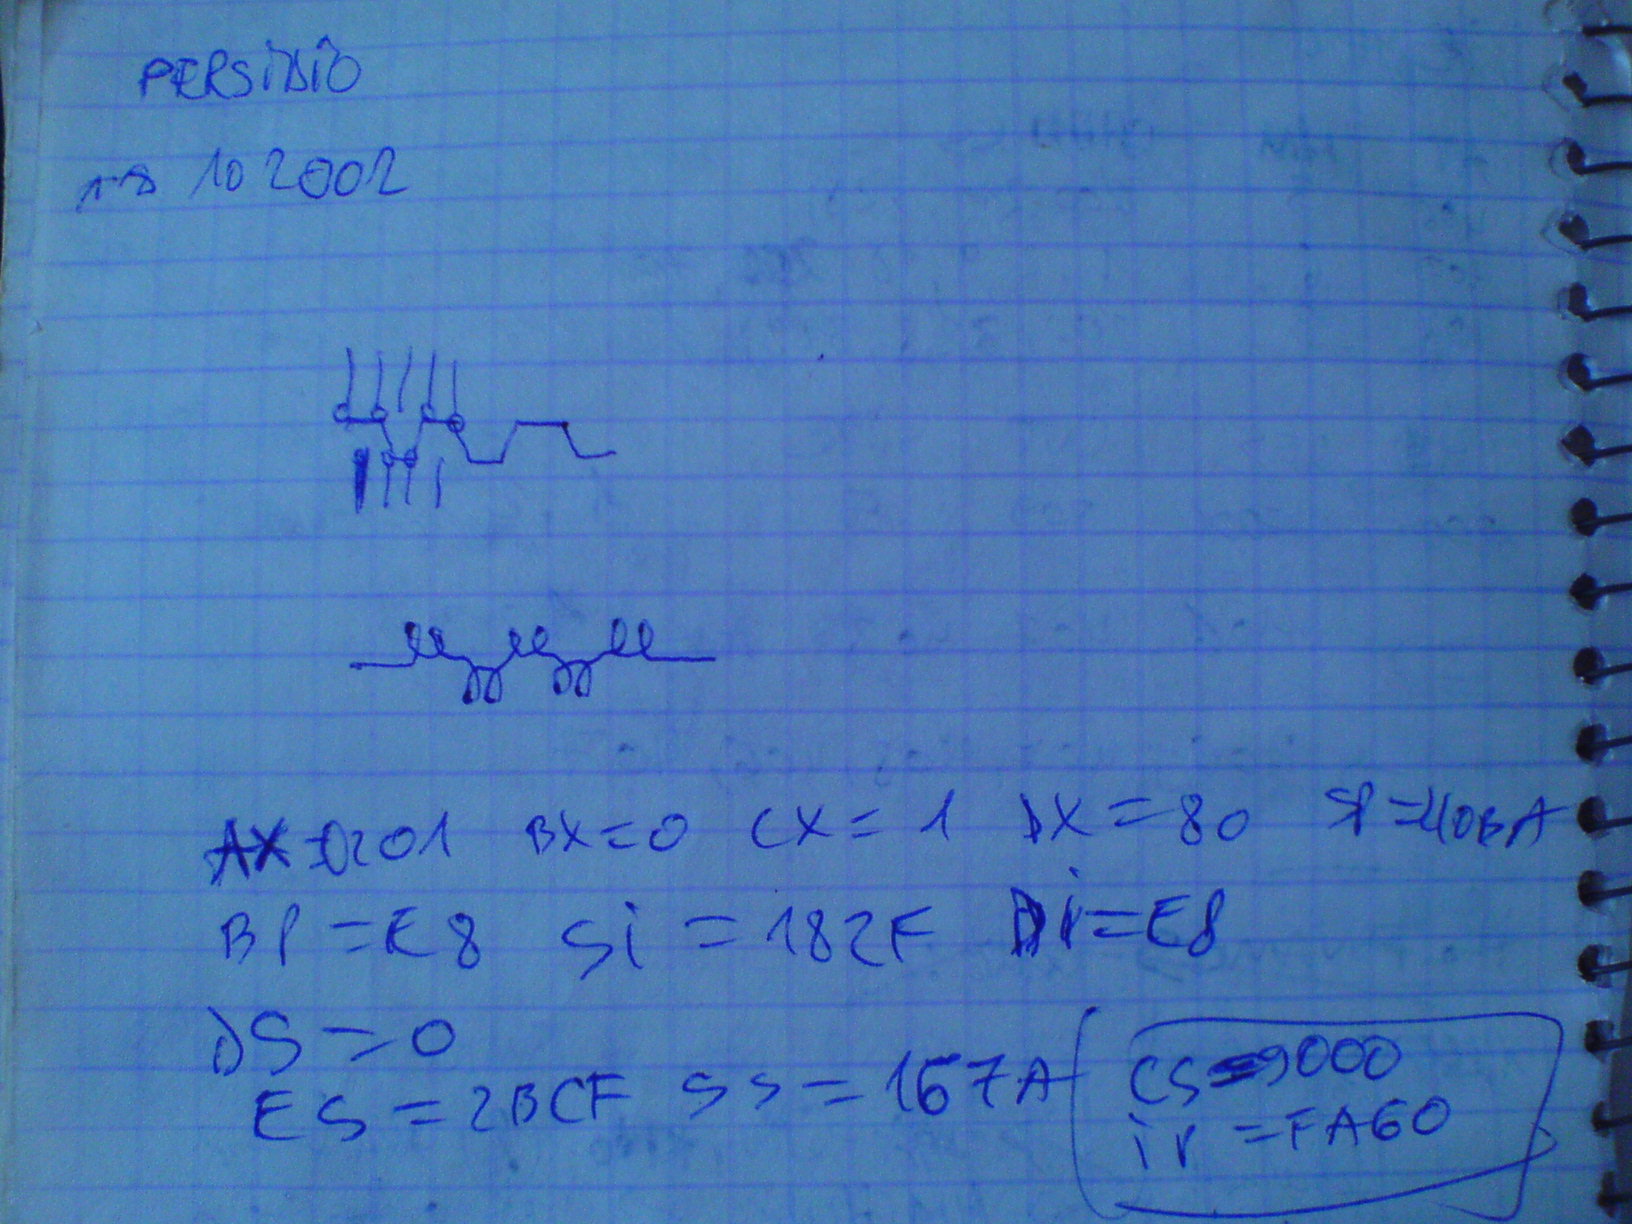 PERSIDIO
10 2002
AX=0201 BX=0 CX=1 DX=80 SP=40BA
BP=E8 Si=182F Di=E8
DS=0
ES=2BCF SS=167A CS=9000
iP=FA60